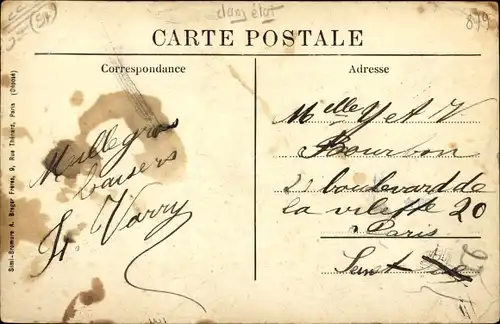 dans l'état
879
CARTE POSTALE
Correspondance
Adresse
Simi-Bromure A. Breger Frères, 9, Rue Thénard, Paris (Déposé)
Mille gros
baisers
Fr. Varry
Melle Y et V
Bourbon
21 boulevard de
la vilette 20
Paris